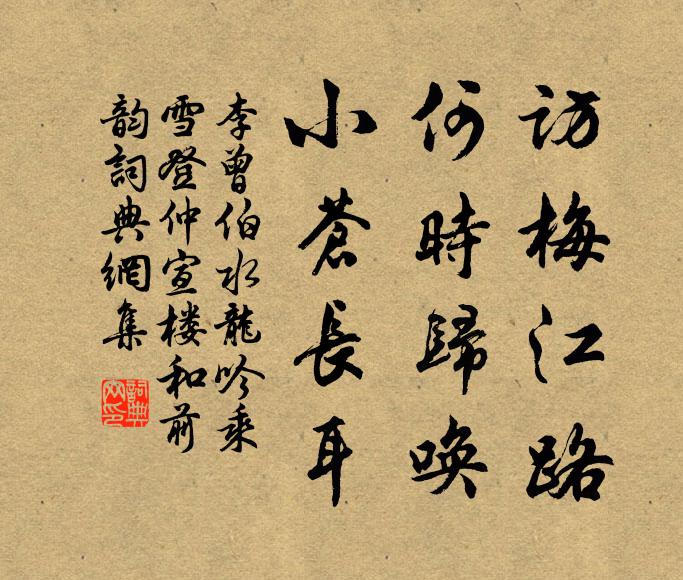 訪梅江路
何時歸喚
小蒼長耳
李曾伯水龍吟乘
雪登仲宣楼和前
韵詞典網集
詞典
网印